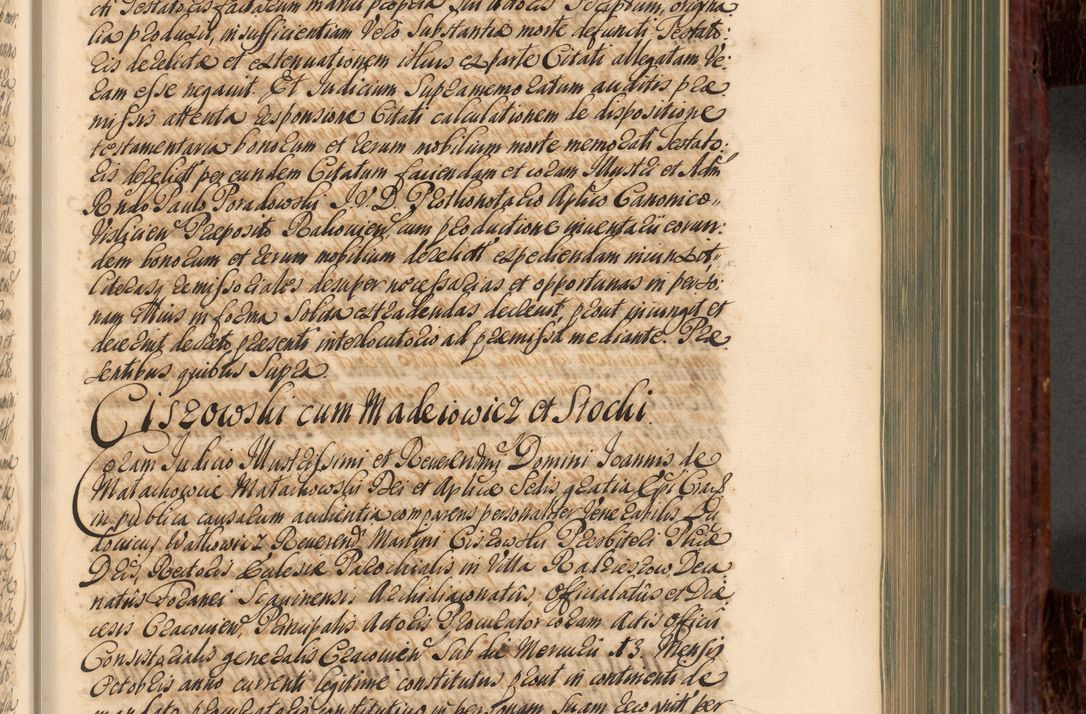 cti Testatoris factarum manu propria sui actoris scriptum, origina
lia produxit, insufficientiam vero substantiæ morte defuncti Testato:
ris derelictæ et extenuationem illius ex parte Citati allegatam ve:
ram esse negavit. Et Judicium supramemoratum auditis præ
missis attenta responsione Citati calculationem de dispositione
testamentaria bonorum et rerum mobilium morte memorati Testato:
ris derelict per eundem Citatum faciendam et coram Illustri et Adm
Rndo Paulo Poradowski J.V.D. Prothonotario Aplico Canonico
Vislicien Præposito Rahovien cum productione inventarii eorun
dem bonorum et rerum mobilium derelict expediendam iniunxit
literasq remissoriales desuper necessarias et opportunas in perso:
nam illius in forma solida extradendas decrevit, prout iniungit et
decernit decreto præsenti interlocutorio ad præmissa mediante. Præ
sentibus quibus supra.
Ciszowski cum Maderowicz et Stochi.
Coram Judicio Illustrissimi et Reverendmi Domini Joannis de
Małachowice Małachowski Dei et Aplicæ Sedis gratia Epi Crac
in publica causarum audientia comparens personaliter Venerabilis Lu
dovicus Watkowicz Reverend Martini Ciszowski Præsbiteri
Rectoris Ecclesiæ Parochialis in Villa Deca
natus foranei Archidiaconatus, Officialatus et Diæ
cesis Cracovien, Principalis Actoris Procurator coram Actis Officii
Consistorialis generalis Cracovien sub die Mercurii 13 Mensis
Octobris anno currenti legitime constitutus prout in continenti de
mandato procuratorio constitutivo in personam suam docuit per